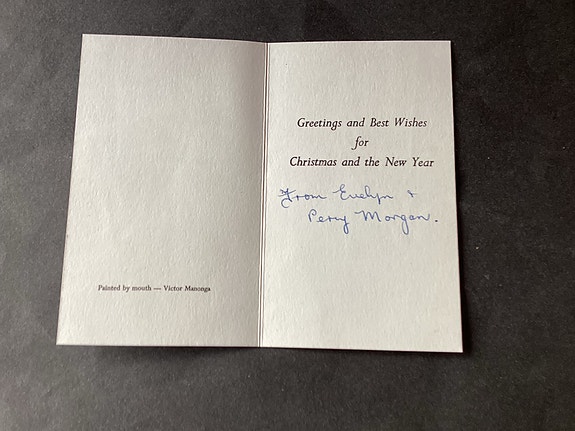 Painted by mouth — Victor Manonga
Greetings and Best Wishes
for
Christmas and the New Year
From Evelyn &
Percy Morgan.